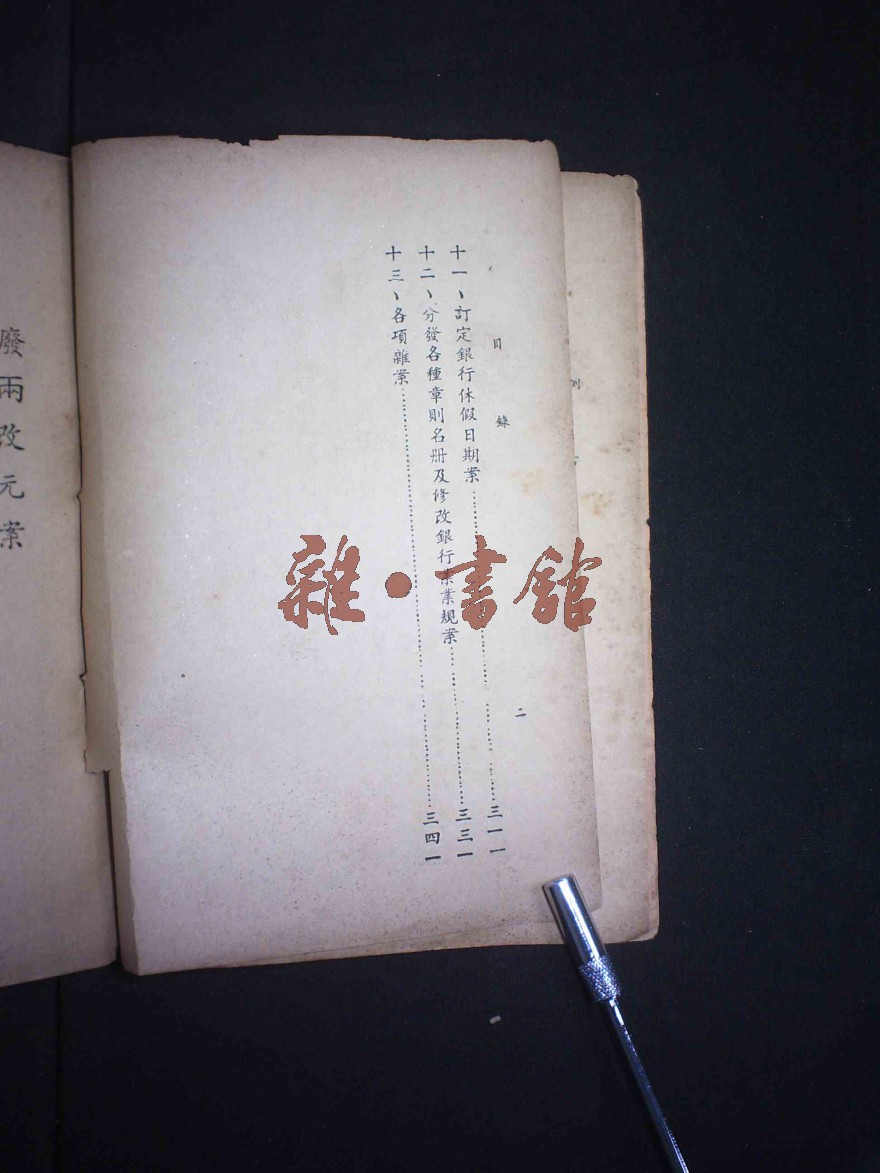 目錄
二
十一、訂定銀行休假日期案……三一一
十二、分發各種章則名册及修改銀行業業規案……三三一
十三、各項雜案……三四一
廢兩改元案
雜·書館